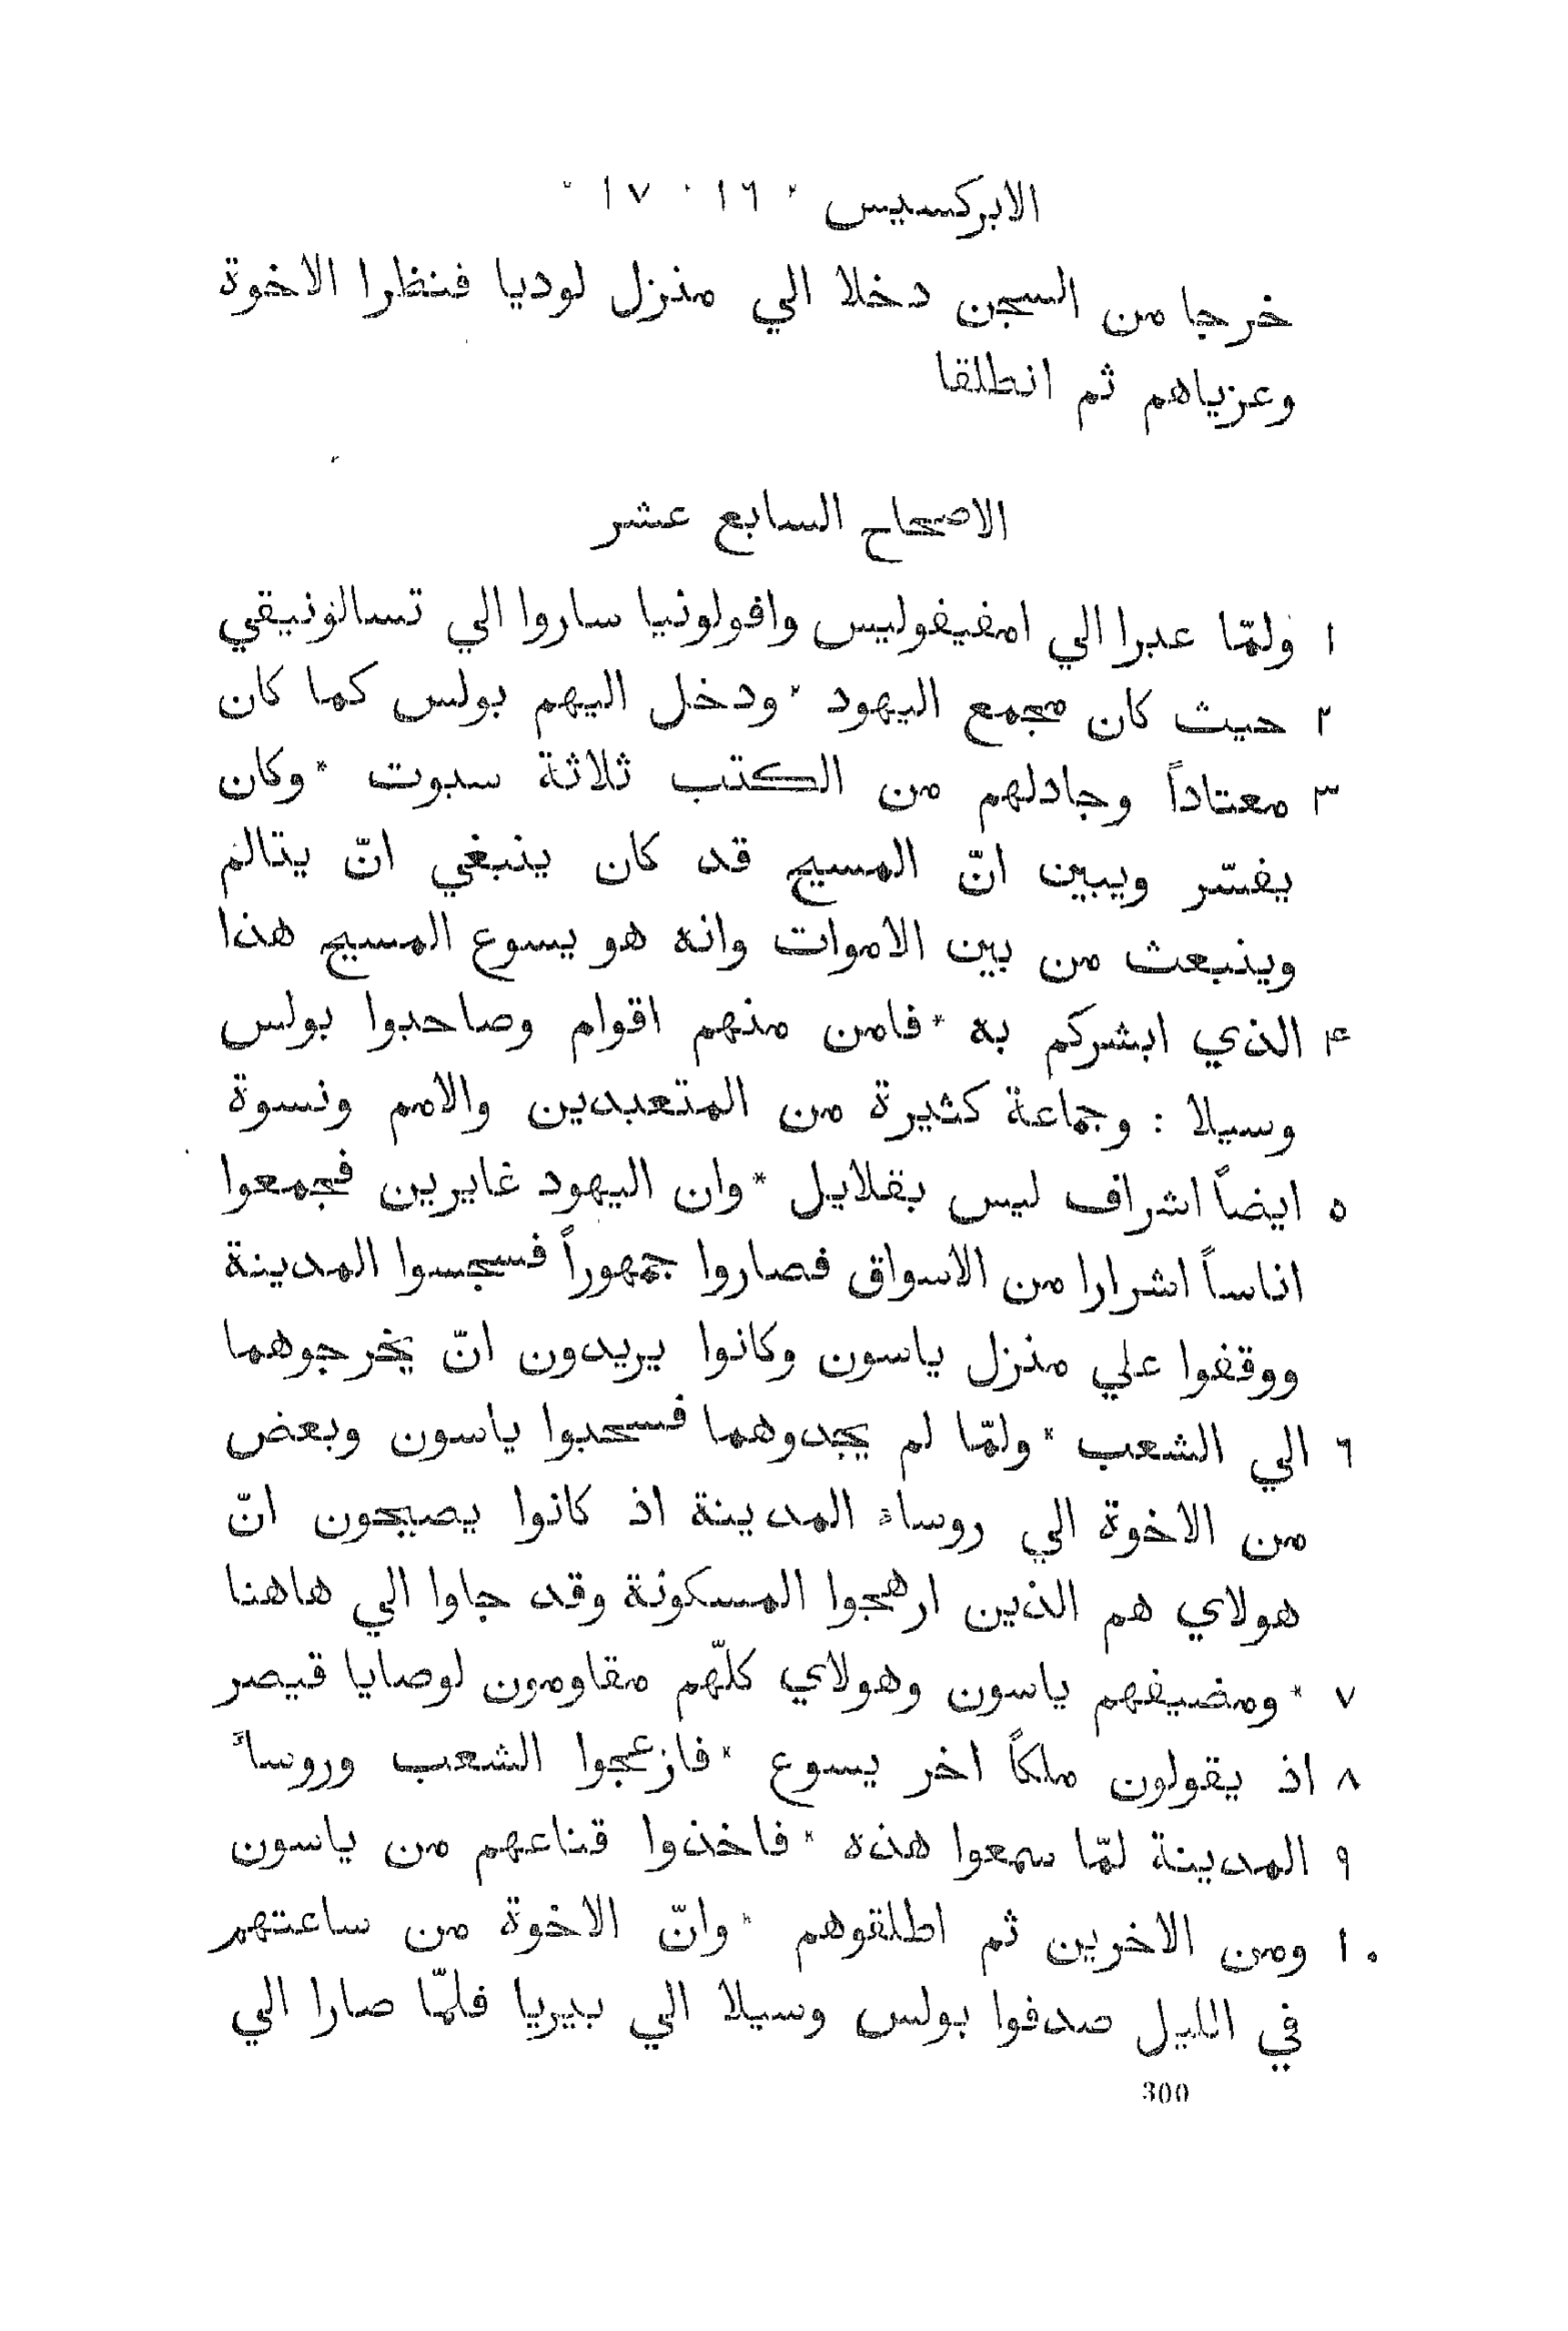 الابركسيس * ١٦ * ١٧ *
خرجا من السجن دخلا الي منزل لوديا فنظرا الاخوة
وعزياهم ثم انطلقا
الاصحاح السابع عشر
١ ولمّا عبرا الي امفيفوليس وافولونيا ساروا الي تسالونيقي
٢ حيث كان مجمع اليهود * ودخل اليهم بولس كما كان
٣ معتاداً وجادلهم من الكتب ثلاثة سبوت * وكان
يفسّر ويبين انّ المسيح قد كان ينبغي انّ يتالم
وينبعث من بين الاموات وانه هو يسوع المسيح هذا
۴ الذي ابشركم به * فامن منهم اقوام وصاحبوا بولس
وسيلا : وجماعة كثيرة من المتعبدين والامم ونسوة
٥ ايضاً اشراف ليس بقلايل * وان اليهود غايرين فجمعوا
اناساً اشرارا من الاسواق فصاروا جمهوراً فسجسوا المدينة
ووقفوا علي منزل ياسون وكانوا يريدون انّ يخرجوهما
٦ الي الشعب * ولمّا لم يجدوهما فسحبوا ياسون وبعض
من الاخوة الي روساء المدينة اذ كانوا يصيحون انّ
هولاي هم الذين ارهجوا المسكونة وقد جاوا الي هاهنا
٧ * ومضيفهم ياسون وهولاي كلّهم مقاومون لوصايا قيصر
٨ اذ يقولون ملكاً اخر يسوع * فازعجوا الشعب وروساً
٩ المدينة لمّا سمعوا هذه * فاخذوا قناعهم من ياسون
١٠ ومن الاخرين ثم اطلقوهم * وانّ الاخوة من ساعتهم
في الليل صدفوا بولس وسيلا الي بيريا فلمّا صارا الي
300